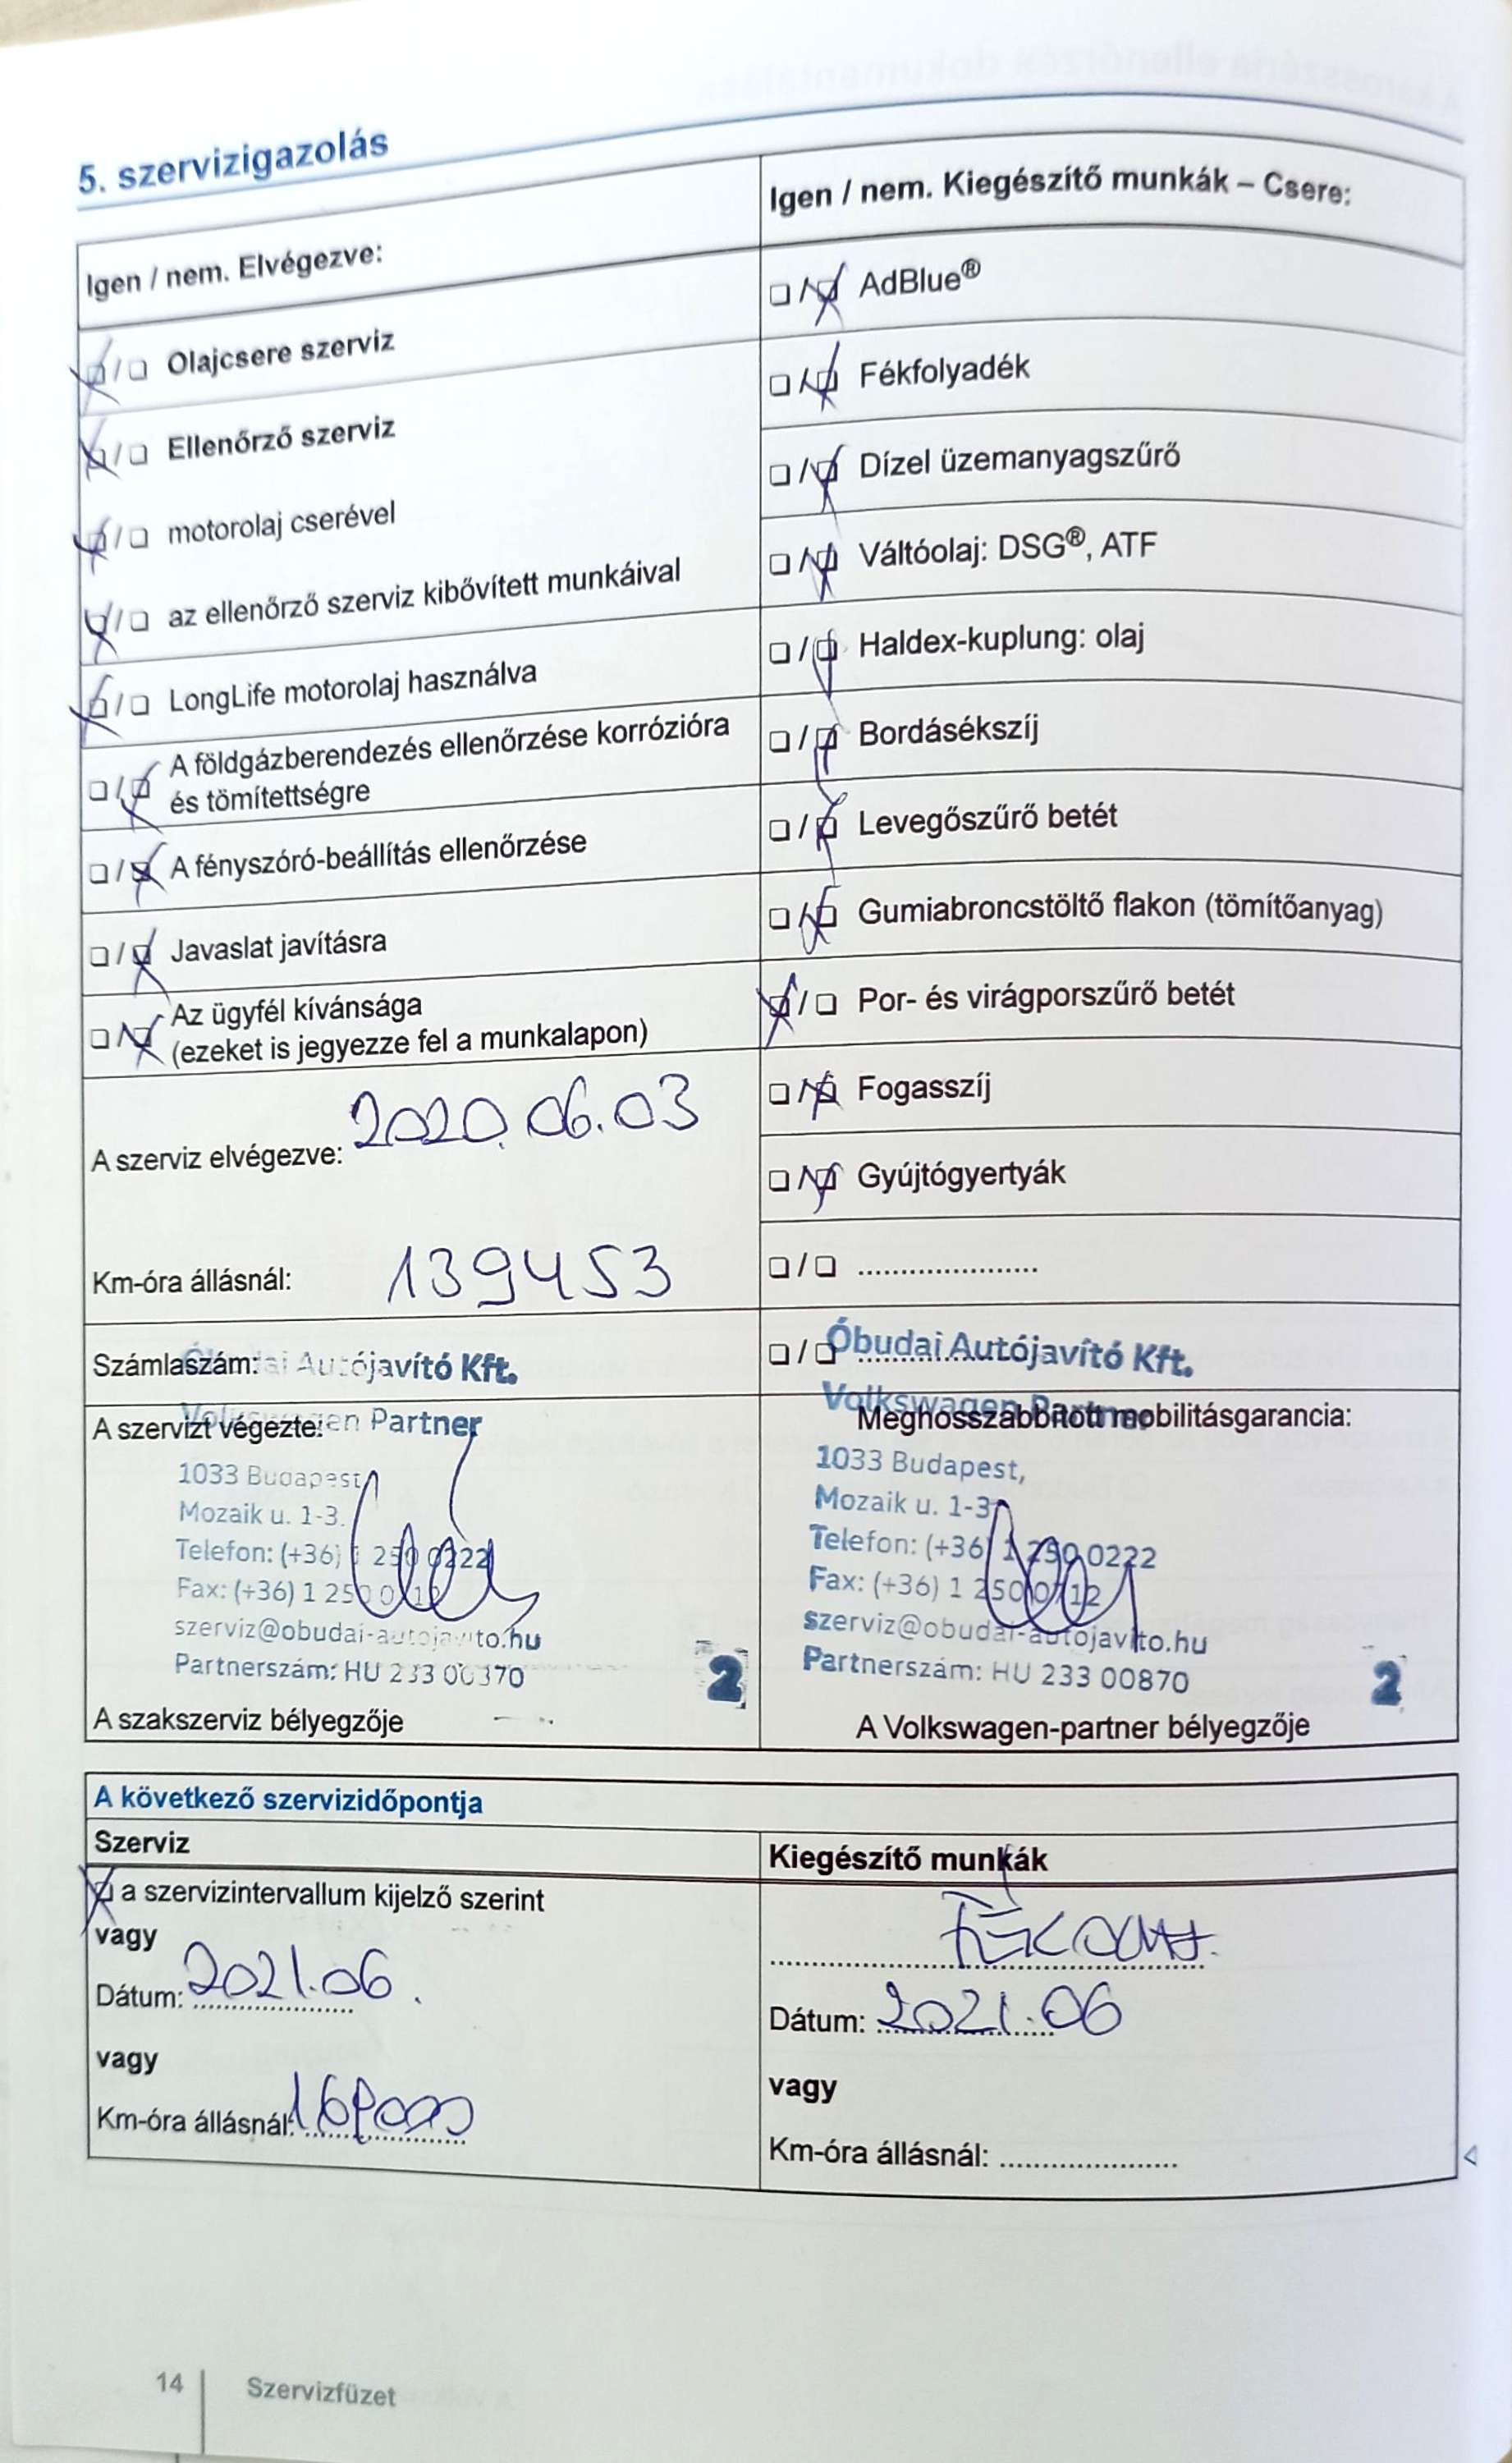 5. szervizigazolás
Igen / nem. Elvégezve:
Olajcsere szerviz
Ellenőrző szerviz
motorolaj cserével
az ellenőrző szerviz kibővített munkáival
LongLife motorolaj használva
A földgázberendezés ellenőrzése korrózióra
és tömítettségre
A fényszóró-beállítás ellenőrzése
Javaslat javításra
Az ügyfél kívánsága
(ezeket is jegyezze fel a munkalapon)
A szerviz elvégezve: 2020.06.03
Km-óra állásnál: 139453
Számlaszám:
Autójavító Kft.
A szervizt végezte:
Volkswagen Partner
1033 Budapest
Mozaik u. 1-3.
Telefon: (+36) 1 250 0222
Fax: (+36) 1 250 0712
szerviz@obudai-autojavito.hu
Partnerszám: HU 233 00870
2
A szakszerviz bélyegzője
Igen / nem. Kiegészítő munkák – Csere:
AdBlue®
Fékfolyadék
Dízel üzemanyagszűrő
Váltóolaj: DSG®, ATF
Haldex-kuplung: olaj
Bordásékszíj
Levegőszűrő betét
Gumiabroncstöltő flakon (tömítőanyag)
Por- és virágporszűrő betét
Fogasszíj
Gyújtógyertyák
Óbudai Autójavító Kft.
Volkswagen Partner
Meghosszabbított mobilitásgarancia:
1033 Budapest,
Mozaik u. 1-3
Telefon: (+36) 1 250 0222
Fax: (+36) 1 250 0712
szerviz@obudai-autojavito.hu
Partnerszám: HU 233 00870
2
A Volkswagen-partner bélyegzője
A következő szervizidőpontja
Szerviz
a szervizintervallum kijelző szerint
vagy
Dátum: 2021.06.
vagy
Km-óra állásnál:
Kiegészítő munkák
Dátum: 2021.06
vagy
Km-óra állásnál:
14
Szervizfüzet